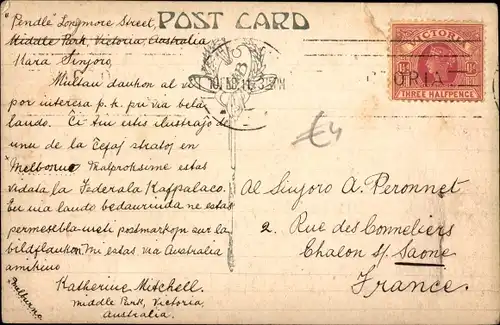 POST CARD
"Pendle" Longmore Street,
Middle Park, Victoria, Australia
Kara Sinjoro,
Multau dankon al vi
por interesa p.k. pri via bela
lando. Ĉi tiu estis ilustraĵo de
unu de la ĉefaj stratoj en
"Melborne" Malproksime estas
vidata la Federala Kafpalaco.
En nia lando bedaurinda ne estas
permesebla meti postmarkojn sur la
bildflankon. Mi estas via Australia
amikino
Katherine Mitchell.
Middle Park, Victoria,
Australia.
VICTORIA
1½ 1½
THREE HALFPENCE
ORIA
€4
Al Sinjoro A. Peronnet
2. Rue des Conneliers
Chalon s/. Saone
France.